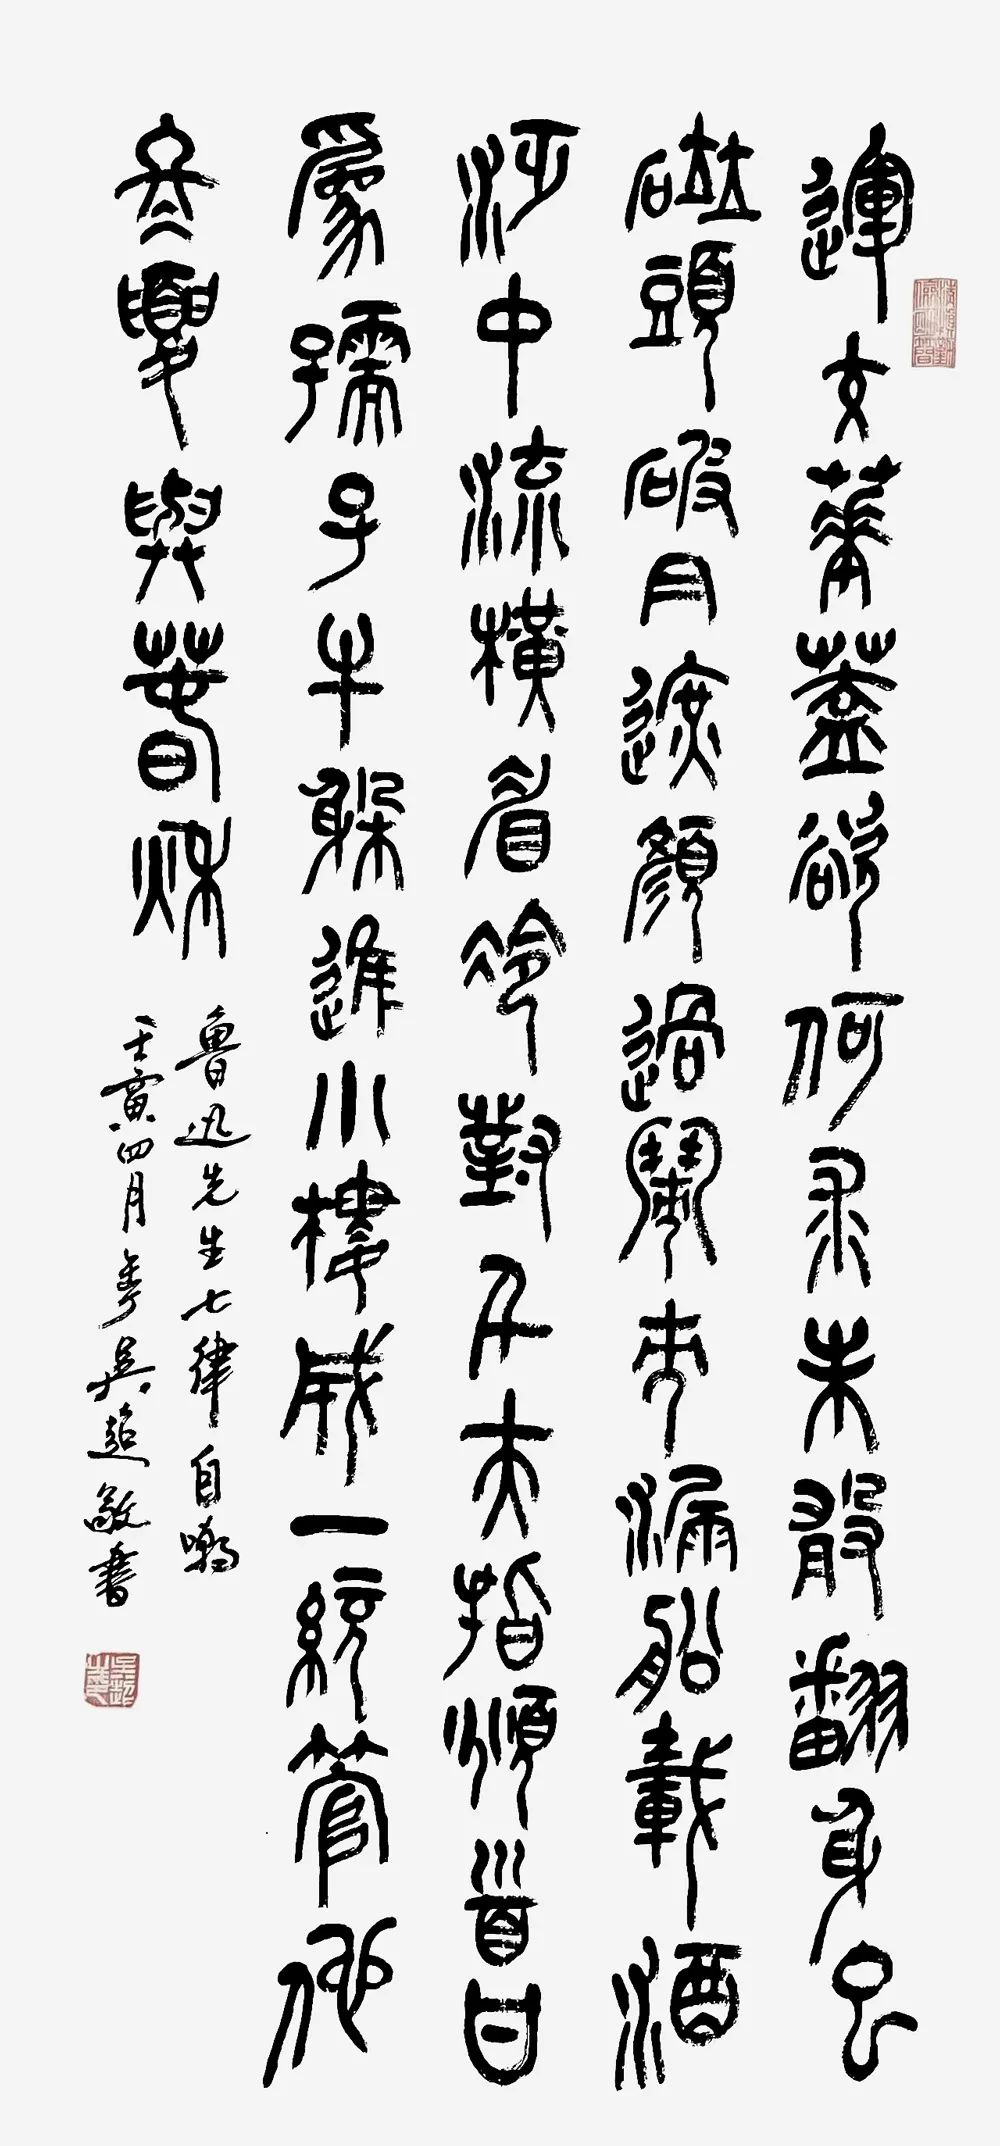 運交華蓋欲何求未敢翻身已
碰頭破冃遮顏過鬧市漏船載酒
泛中流橫眉冷對千夫指頫首甘
為孺子牛躲進小樓成一統管他
冬夏與春秋
魯迅先生七律自嘲
壬寅四月吳超敬書